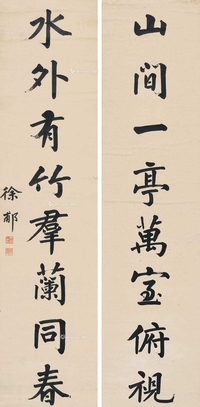 山間一亭萬室俯視
水外有竹羣蘭同春
徐郙